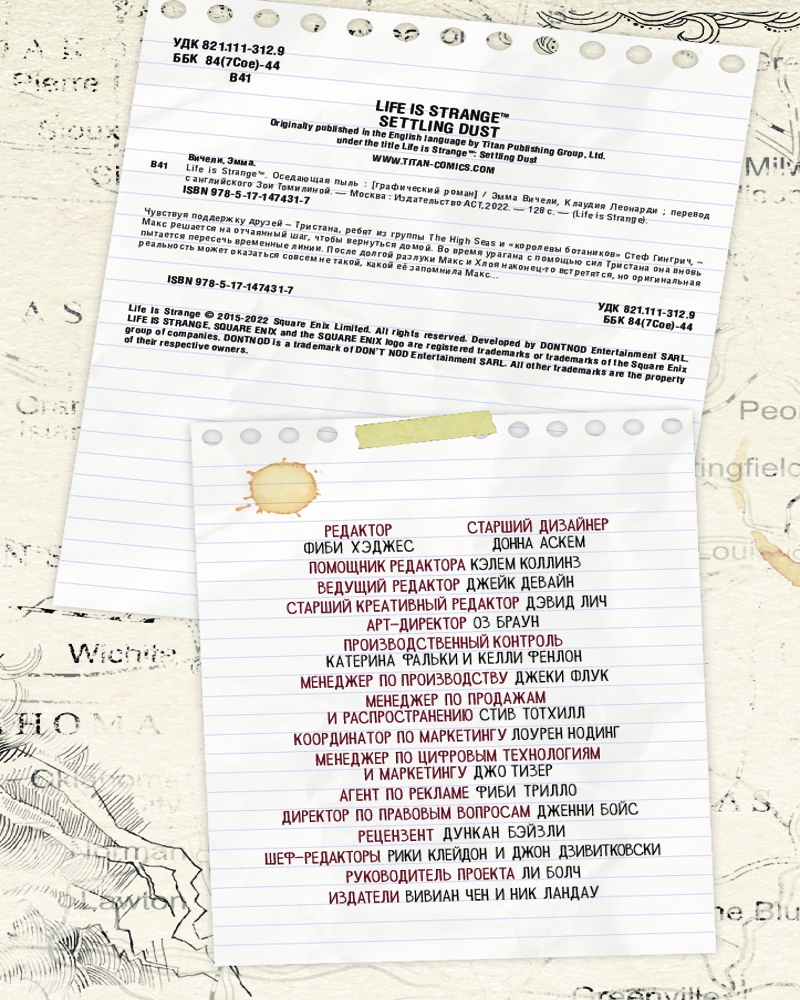 УДК 821.111-312.9
ББК 84(7Сое)-44
В41
LIFE IS STRANGE™
SETTLING DUST
Originally published in the English language by Titan Publishing Group, Ltd.
under the title Life is Strange™: Settling Dust
WWW.TITAN-COMICS.COM
Вичели, Эмма.
В41 Life is Strange™. Оседающая пыль : [графический роман] / Эмма Вичели, Клаудия Леонарди ; перевод
с английского Зои Томилиной. — Москва : Издательство АСТ, 2022. — 128 с. — (Life is Strange).
ISBN 978-5-17-147431-7
Чувствуя поддержку друзей – Тристана, ребят из группы The High Seas и «королевы ботаников» Стеф Гингрич, –
Макс решается на отчаянный шаг, чтобы вернуться домой. Во время урагана с помощью сил Тристана она вновь
пытается пересечь временные линии. После долгой разлуки Макс и Хлоя наконец-то встретятся, но оригинальная
реальность может оказаться совсем не такой, какой её запомнила Макс...
УДК 821.111-312.9
ББК 84(7Сое)-44
ISBN 978-5-17-147431-7
Life is Strange © 2015-2022 Square Enix Limited. All rights reserved. Developed by DONTNOD Entertainment SARL.
LIFE IS STRANGE, SQUARE ENIX and the SQUARE ENIX logo are registered trademarks or trademarks of the Square Enix
group of companies. DONTNOD is a trademark of DON'T NOD Entertainment SARL. All other trademarks are the property
of their respective owners.
РЕДАКТОР
ФИБИ ХЭДЖЕС
СТАРШИЙ ДИЗАЙНЕР
ДОННА АСКЕМ
ПОМОЩНИК РЕДАКТОРА КЭЛЕМ КОЛЛИНЗ
ВЕДУЩИЙ РЕДАКТОР ДЖЕЙК ДЕВАЙН
СТАРШИЙ КРЕАТИВНЫЙ РЕДАКТОР ДЭВИД ЛИЧ
АРТ-ДИРЕКТОР ОЗ БРАУН
ПРОИЗВОДСТВЕННЫЙ КОНТРОЛЬ
КАТЕРИНА ФАЛЬКИ И КЕЛЛИ ФЕНЛОН
МЕНЕДЖЕР ПО ПРОИЗВОДСТВУ ДЖЕКИ ФЛУК
МЕНЕДЖЕР ПО ПРОДАЖАМ
И РАСПРОСТРАНЕНИЮ СТИВ ТОТХИЛЛ
КООРДИНАТОР ПО МАРКЕТИНГУ ЛОУРЕН НОДИНГ
МЕНЕДЖЕР ПО ЦИФРОВЫМ ТЕХНОЛОГИЯМ
И МАРКЕТИНГУ ДЖО ТИЗЕР
АГЕНТ ПО РЕКЛАМЕ ФИБИ ТРИЛЛО
ДИРЕКТОР ПО ПРАВОВЫМ ВОПРОСАМ ДЖЕННИ БОЙС
РЕЦЕНЗЕНТ ДУНКАН БЭЙЗЛИ
ШЕФ-РЕДАКТОРЫ РИКИ КЛЕЙДОН И ДЖОН ДЗИВИТКОВСКИ
РУКОВОДИТЕЛЬ ПРОЕКТА ЛИ БОЛЧ
ИЗДАТЕЛИ ВИВИАН ЧЕН И НИК ЛАНДАУ
Pierre
Sioux
Wichita
Lawton
Greenville